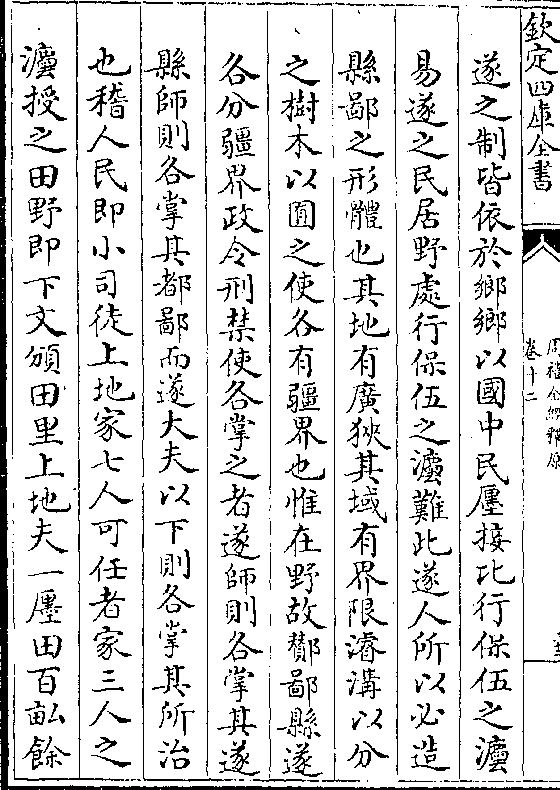 欽定四庫全書
周禮全經釋原
卷十二
遂之制皆依於鄉鄉以國中民廛接比行保伍之灋
易遂之民居野處行保伍之灋難此遂人所以必造
縣鄙之形體也其地有廣狹其域有界限濬溝以分
之樹木以固之使各有疆界也惟在野故酇鄙縣遂
各分疆界政令刑禁使各掌之者遂師則各掌其遂
縣師則各掌其都鄙而遂大夫以下則各掌其所治
也稽人民即小司徒上地家七人可任者家三人之
灋授之田野即下文頒田里上地夫一廛田百畝餘